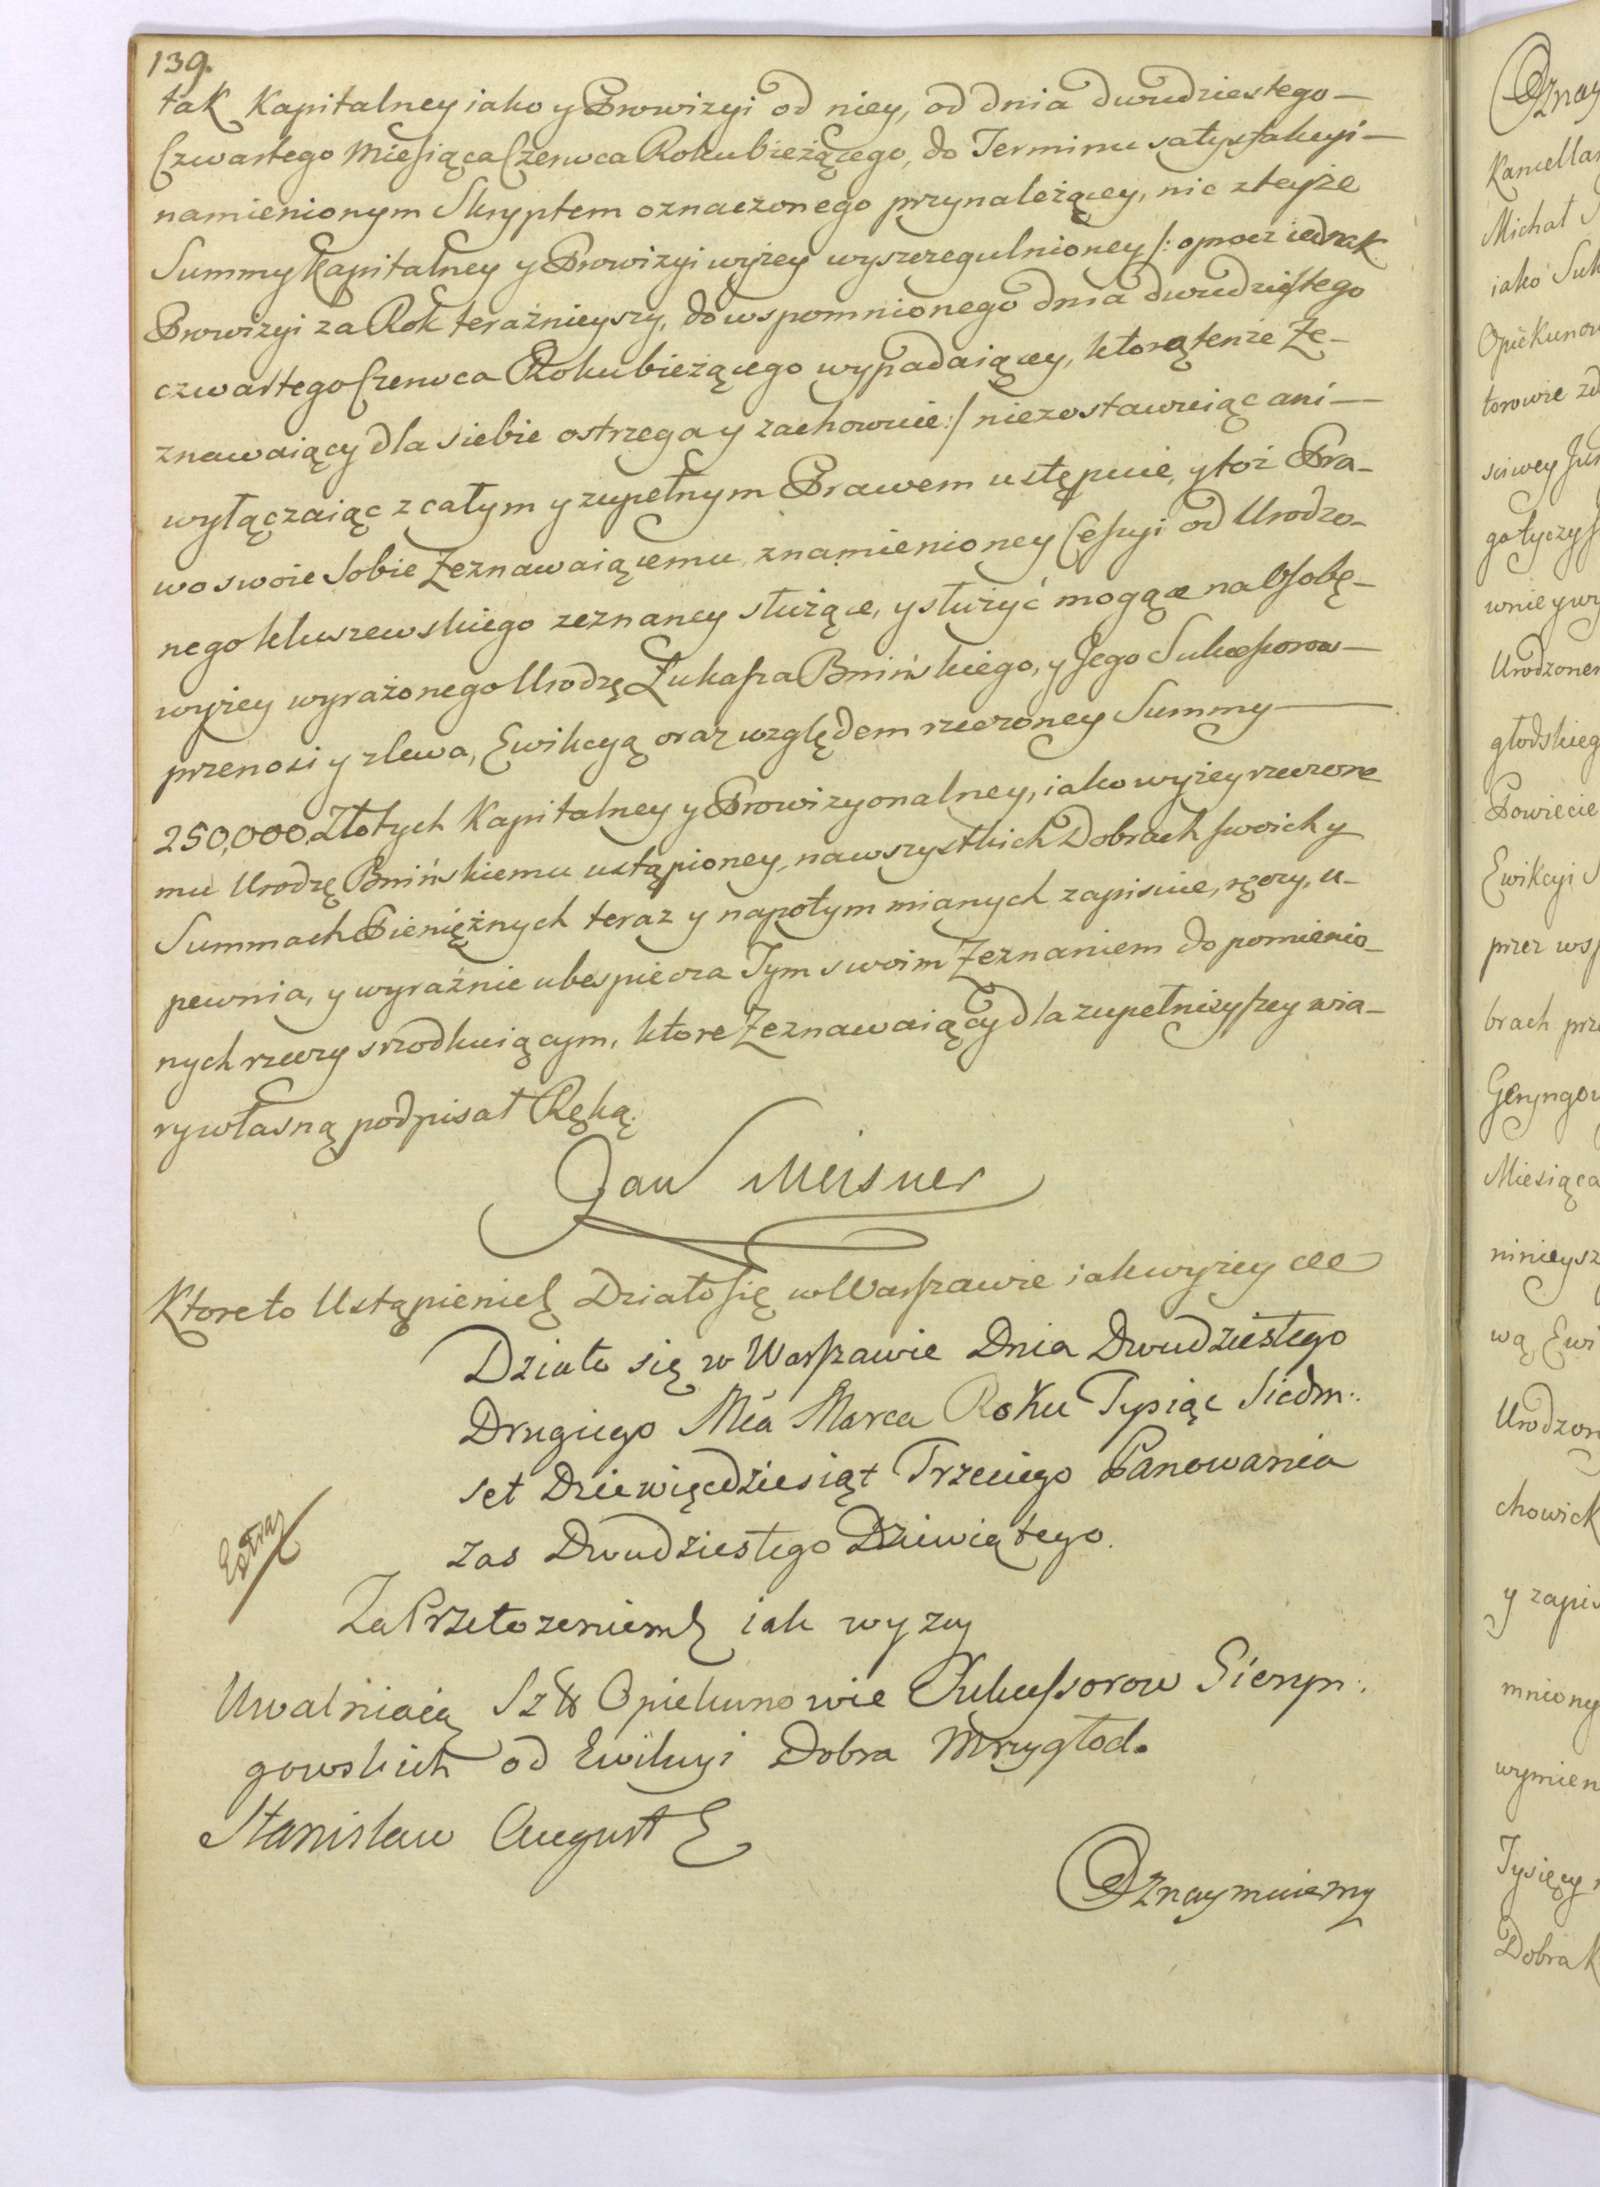 139.
tak Kapitalney iako y Prowizyi od niey, od dnia dwudziestego —
Czwartego Miesiąca Czerwca Roku bieżącego, do Terminu satysfakcyi —
namienionym Skryptem oznaczonego przynależącey, nic z teyże
Summy Kapitalney y Prowizyi wyżey wyszczegulnioney /: oprocz iednak
Prowizyi za Rok teraźnieyszy, do wspomnionego dnia dwudziestego
czwartego Czerwca Roku bieżącego wypadaiącey, ktorą tenże Ze-
znawaiący dla siebie ostrzega y zachowuie :/ niezostawuiąc ani —
wyłączaiąc z całym y zupełnym Prawem ustępuie, y toż Pra-
wo swoie Sobie Zeznawaiącemu z namienioney Cessyi od Urodzo-
nego Kluszewskiego zeznaney służące, y służyć mogące na Osobę —
wyżey wyrażonego Urodzę Łukasza Bnińskiego, y Jego Sukcessorow —
przenosi y zlewa, Ewikcyą oraz względem rzeczoney Summy —
250,000 Złotych Kapitalney y Prowizyonalney, iako wyżey rzeczone
mu Urodzę Bnińskiemu ustąpioney, na wszystkich Dobrach swoich y
Summach Pieniężnych teraz y napotym mianych zapisuie, ręczy, u-
pewnia, y wyraźnie ubespiecza Tym swoim Zeznaniem do pomienio-
nych rzeczy srzodkuiącym, ktore Zeznawaiący dla zupełnieyszey wia-
ry własną podpisał Ręką.
Jan Meisner
Ktore to Ustąpienie Działo się w Warszawie iak wyżey
Działo się w Warszawie Dnia Dwudziestego
Drugiego Mca Marca Roku Tysiąc Siedm:
set Dziewięcdziesiąt Trzeciego Panowania
zas Dwudziestego Dziewiątego.
Extrax
Za Przełozeniem iak wyzey
Uwalniaią Opiekunowie Sukcessorow Gieryn:
gowskich od Ewikcyi Dobra Mrzygłod.
Stanisław August
Oznaymuiemy
Oznay
Kancellar
Michał
iako Suk
Opiekunow
torowie zd
sciwey Jur
go tyczys
wnie y wy
Urodzonem
głodskieg
Powiecie
Ewikcyi S
przez wsp
brach prz
Geryngow
Miesiąca
ninieysz
wą Ewi
Urodzon
chowick
y zapis
mniony
wymien
Tysięcy
Dobra K